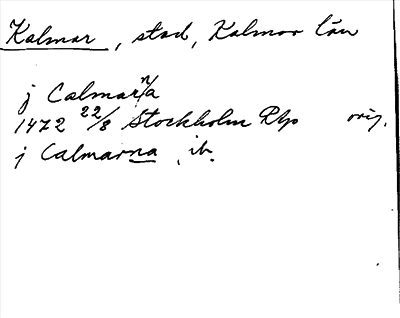 Kalmar, stad, Kalmar län
j Calmarn/a
1472 22/8 Stockholm Rhp orig.
j Calmarna ib.